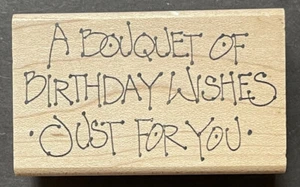 A BOUQUET OF
BIRTHDAY WISHES
· JUST FOR YOU ·